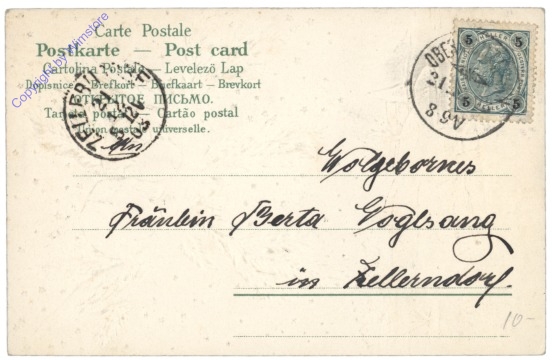 Carte Postale
Postkarte — Post card
Cartolina Postale — Levelező Lap
Dopisnice — Brefkort — Briefkaart — Brevkort
ОТКРЫТОЕ ПИСЬМО.
Tarjeta postal — Cartão postal
Union postale universelle.
5 5
5 5
8·9N
Wolgebornes
Fräulein Berta Voglsang
in Zellerndorf.
10-
Copyright by Wimstore